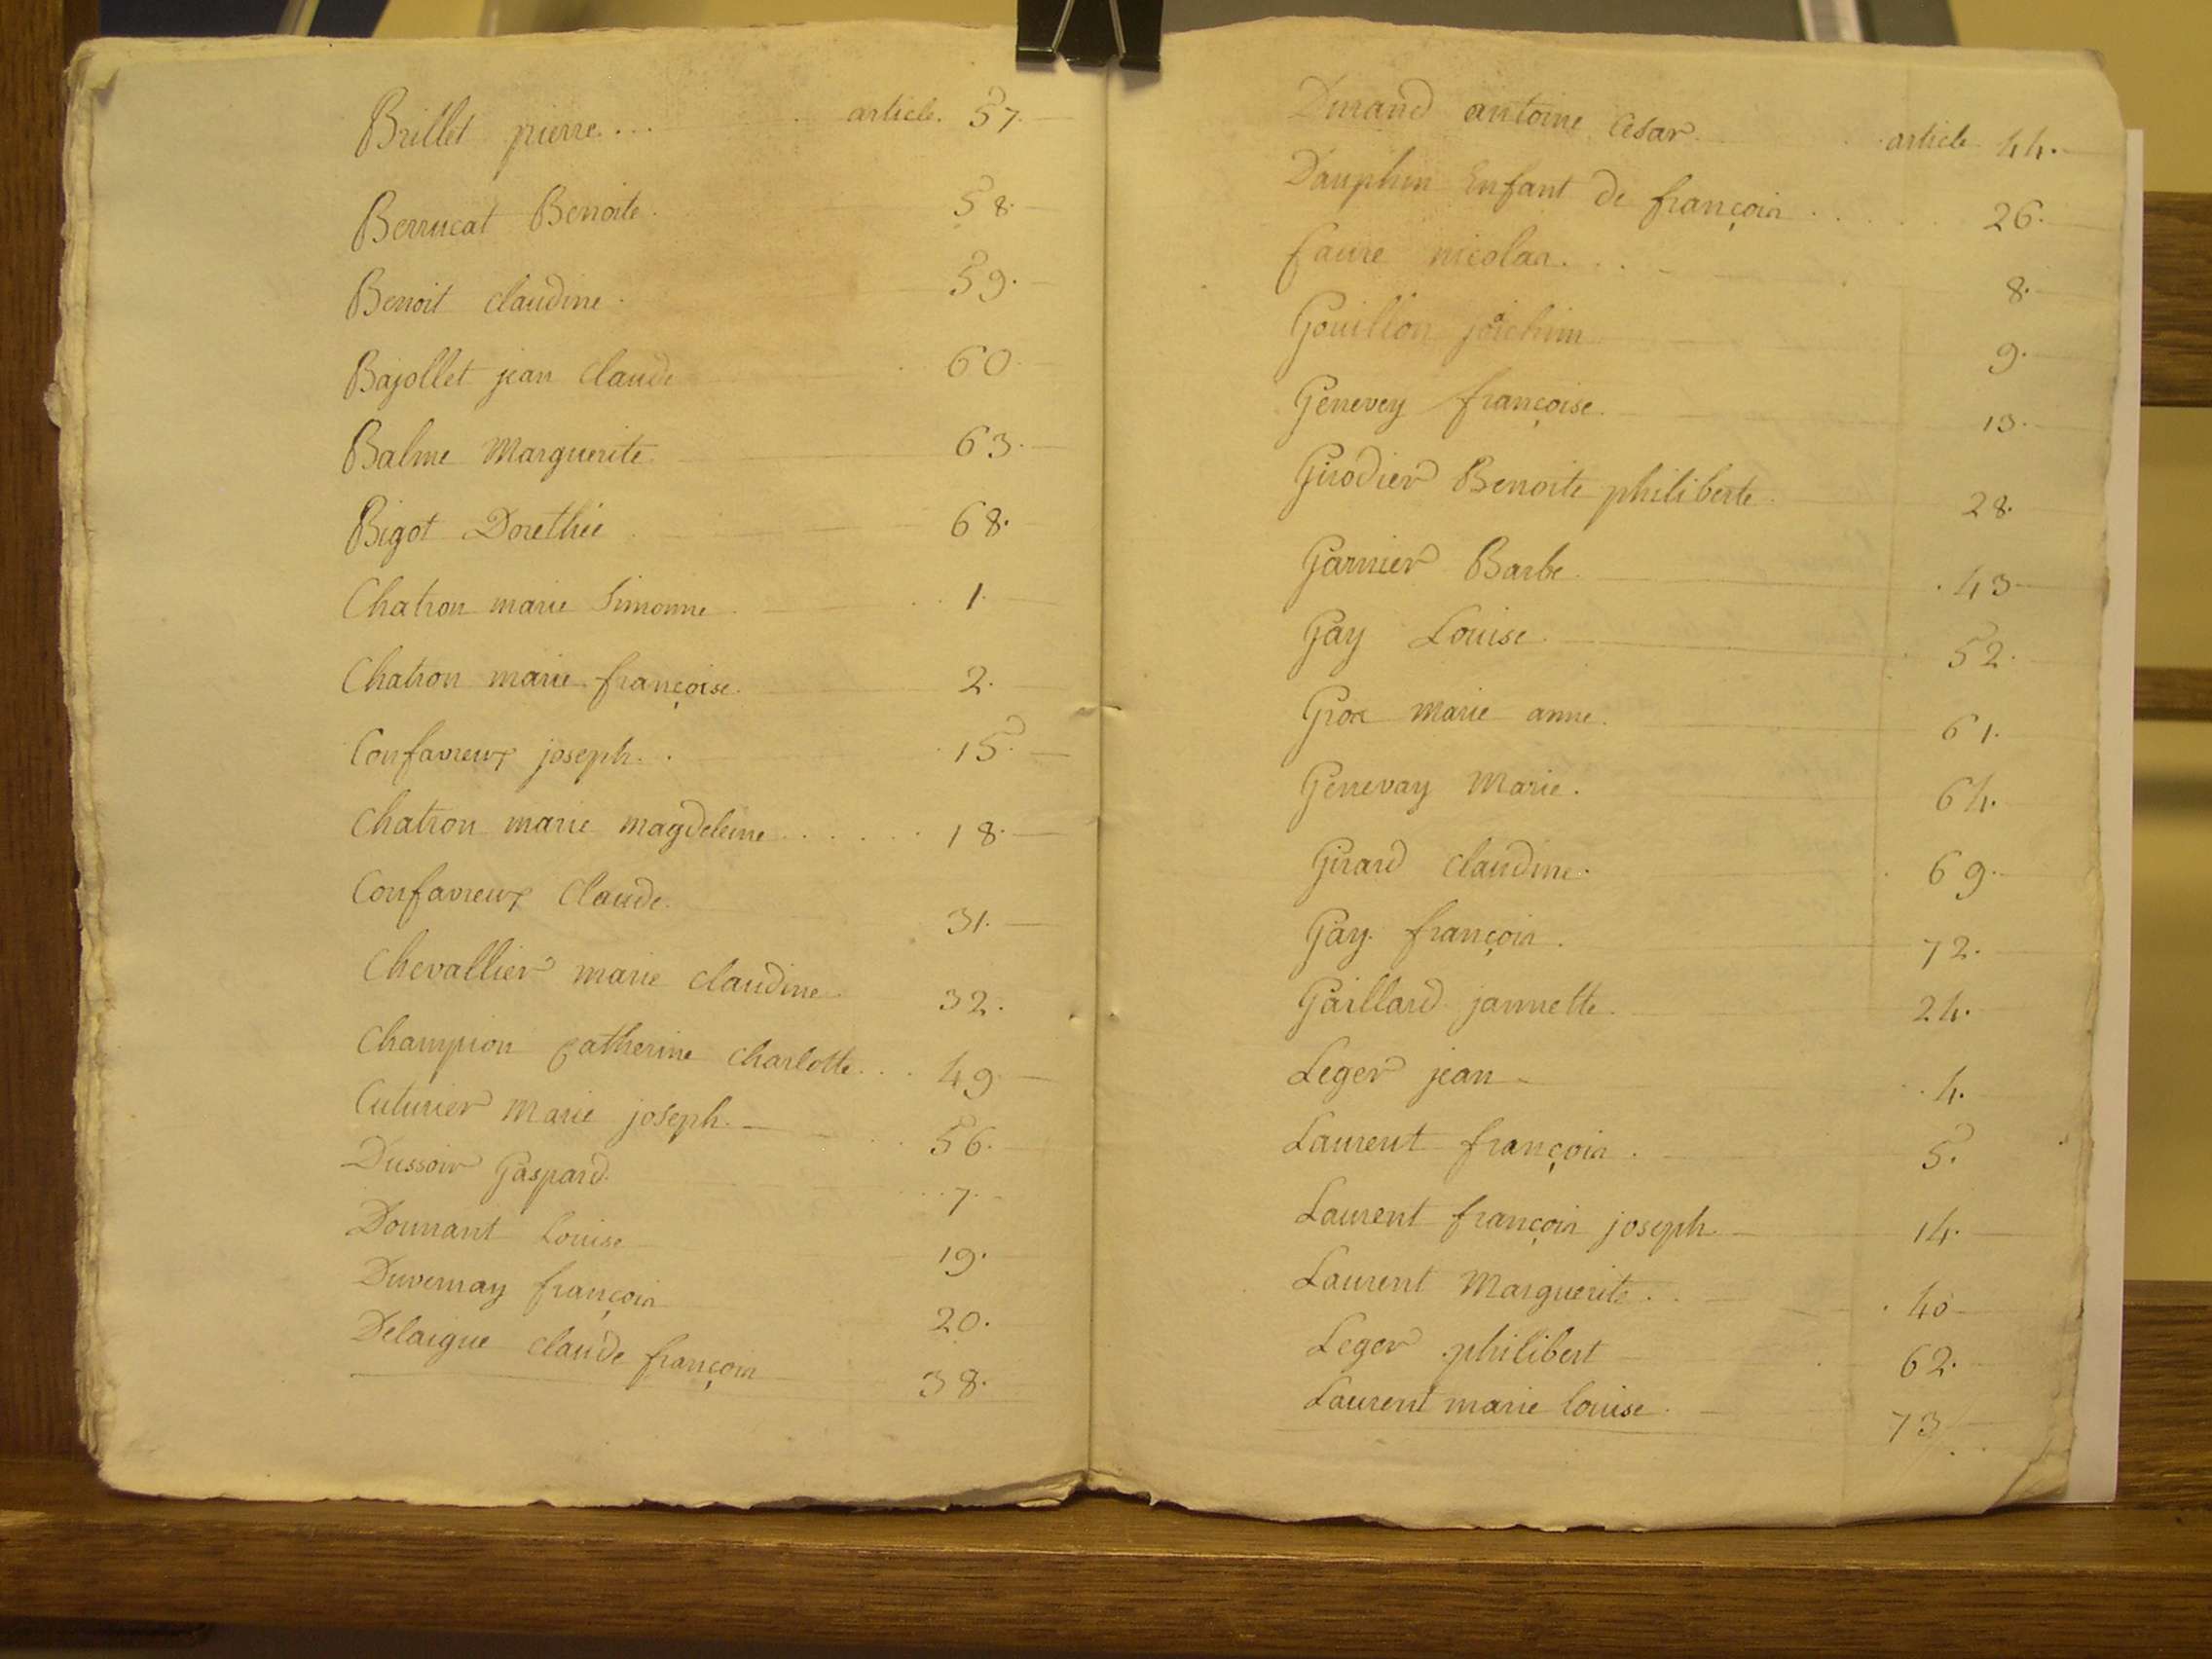 Brillet pierre... article. 57.
Berrucat Benoite. 58.
Benoit claudine. 59.
Bajollet jean claude 60.
Balme Marguerite. 63.
Bigot Dorethée 68.
Chatron marie Simonne. 1.
Chatron marie françoise. 2.
Confavreux joseph.. 15.
Chatron marie magdeleine...... 18.
Confavreux Claude. 31.
Chevallier marie claudine. 32.
Champion Catherine charlotte... 49.
Cuturier Marie joseph. 56.
Dussoir Gaspard. 7.
Dounant Louise 19.
Duvernay françois 20.
Delaigue claude françois 38.
Durand antoine César. article 44.
Dauphin Enfant de françois..... 26.
faure nicolas... 8.
Gouillon joachim 9.
Genevey françoise. 13.
Girodier Benoite philiberte. 28.
Garnier Barbe. 43
Gay Louise. 52.
Gros Marie anne. 61.
Genevay Marie. 64.
Girard claudine. 69.
Gay. françois. 72.
Gaillard jannette. 24.
Leger jean 4.
Laurent françois. 5.
Laurent françois joseph. 14.
Laurent Marguerite.. 40
Leger philibert 62.
Laurent marie louise. 73